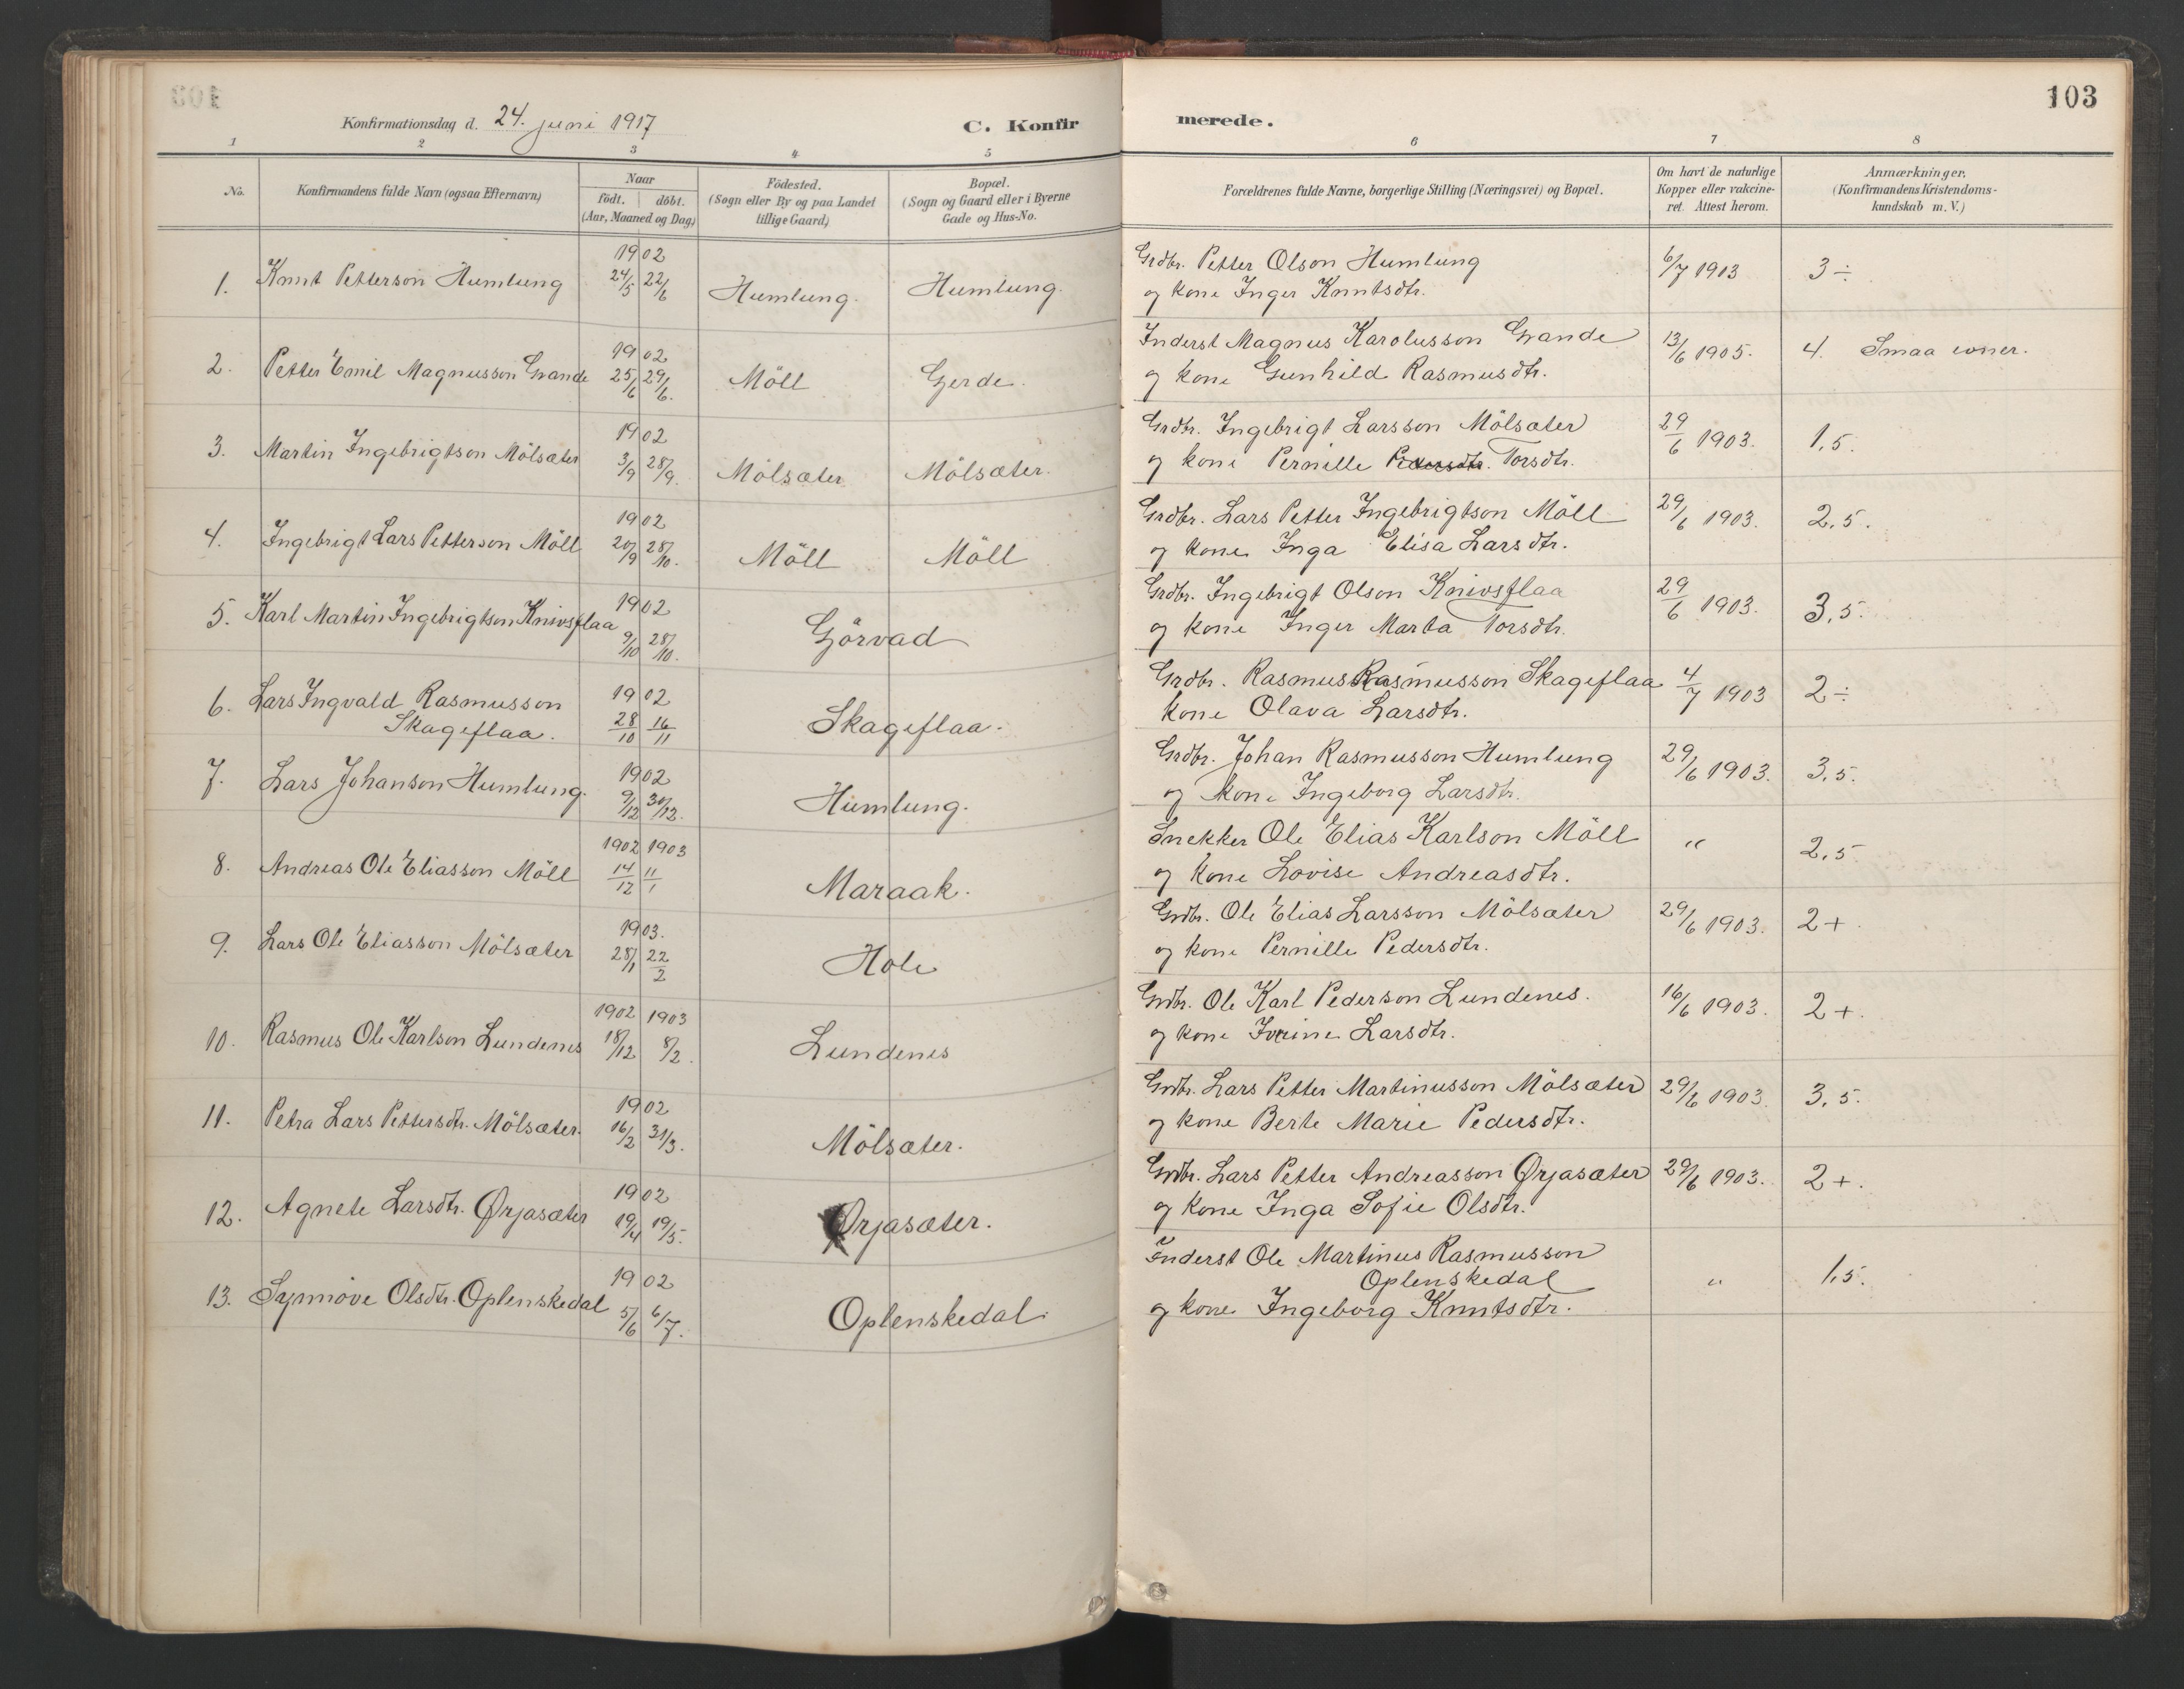 103
Konfirmationsdag d. 24. juni 1917
C. Konfirmerede.
1 2 3 4 5 6 7 8
No.
Konfirmandens fulde Navn (ogsaa Efternavn)
Naar
født. døbt.
(Aar, Maaned og Dag)
Födested.
(Sogn eller By og paa Landet
tillige Gaard)
Bopæl.
(Sogn og Gaard eller i Byerne
Gade og Hus-No.
Forældrenes fulde Navne, borgerlige Stilling (Næringsvei) og Bopæl.
Om havt de naturlige
Kopper eller vakcine-
ret. Attest herom.
Anmærkninger.
(Konfirmandens Kristendoms-
kundskab m. V.)
1902
1. Knut Petterson Humlung 24/5 22/6 Humlung. Humlung. Grdbr. Petter Olson Humlung 6/7 1913 3÷
og kone Inger Knutsdtr.
1902
2. Petter Emil Magnusson Grande 25/6 29/6. Möll Gerde. Inderst Magnus Karolusson Grande 13/6 1905. 4. Smaa evner.
og kone Gunhild Rasmusdtr.
1902
3. Martin Ingebrigtson Mölsæter 3/9 28/9. Mölsæter Mölsæter. Grdbr. Ingebrigt Larsson Mölsæter 29/6 1903. 1,5.
og kone Pernille Pedersdtr. Torsdtr.
1902
4. Ingebrigt Lars Petterson Möll 20/9 28/10. Möll Möll Grdbr. Lars Petter Ingebrigtson Möll 29/6 1903. 2,5.
og kone Inga Elisa Larsdtr.
1902
5. Karl Martin Ingebrigtson Knivsflaa 9/10 28/10. Görvad Grdbr. Ingebrigt Olson Knivsflaa 29/6 1903. 3,5.
og kone Inger Marta Torsdtr.
1902
6. Lars Ingvald Rasmusson 28/10 16/11 Skageflaa. Grdbr. Rasmus Rasmusson Skageflaa 4/7 1903 2÷
Skageflaa. kone Olava Larsdtr.
1902
7. Lars Johanson Humlung. 9/12 30/12. Humlung. Grdbr. Johan Rasmusson Humlung 29/6 1903. 3,5.
og kone Ingeborg Larsdtr.
1902 1903
8. Andreas Ole Eliasson Möll 14/12 11/1 Maraak. Snekker Ole Elias Karlson Möll " 2,5
og kone Lovise Andreasdtr.
1903.
9. Lars Ole Eliasson Mölsæter 28/1 22/2 Hole Grdbr. Ole Elias Larsson Mölsæter 29/6 1903. 2+.
og kone Pernille Pedersdtr.
1902 1903
10. Rasmus Ole Karlson Lundenes 18/12 8/2. Lundenes Grdbr. Ole Karl Pederson Lundenes. 16/6 1903. 2+.
og kone Larsdtr.
1902
11. Petra Lars Pettersdtr. Mölsæter. 16/2 31/3. Mölsæter. Grdbr. Lars Petter Martinusson Mölsæter 29/6 1903. 3,5.
og kone Berte Marie Pedersdtr.
1902
12. Agnete Larsdtr. Ørjasæter 19/4 19/5. Ørjasæter. Grdbr. Lars Petter Andreasson Ørjasæter 29/6 1903. 2+.
og kone Inga Sofie Olsdtr.
1902
13. Synnöve Olsdtr. Oplenskedal 5/6 6/7. Oplenskedal. Inderst Ole Martinus Rasmusson " 1,5.
Oplenskedal
og kone Ingeborg Knutsdtr.